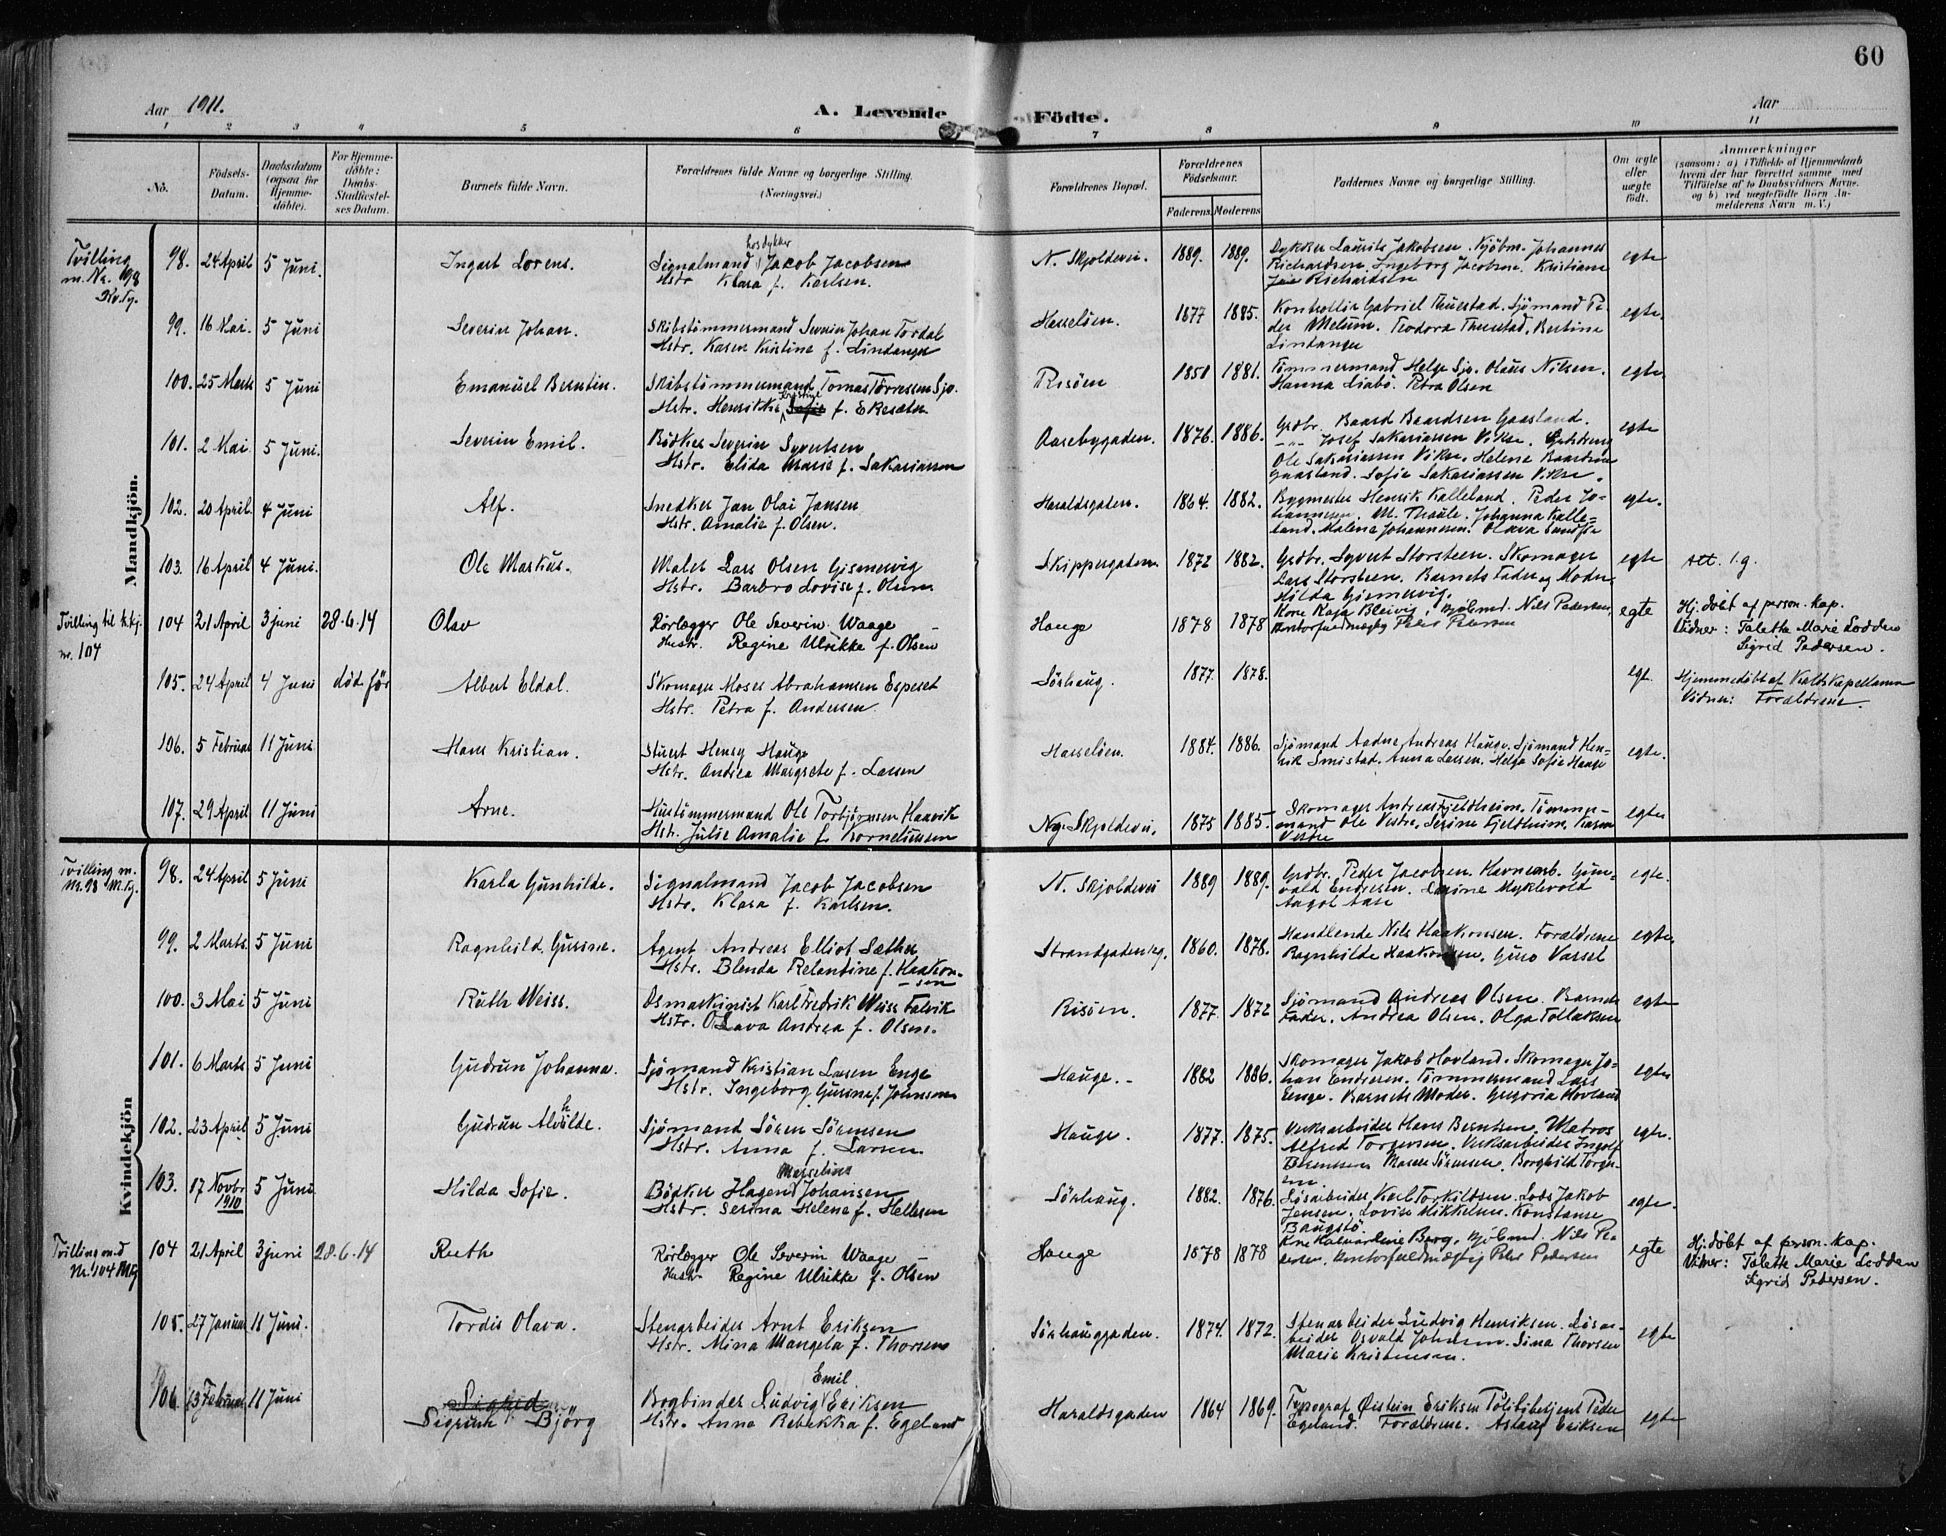 60
Aar 1911.
A. Levende Födte.
Aar
1 2 3 4 5 6 7 8 9 10 11
No.
Födsels-
Datum.
Daabsdatum
(ogsaa for
Hjemme-
döbte).
For Hjemme-
döbte:
Daabs-
Stadfæstel-
ses Datum.
Barnets fulde Navn.
Forældrenes fulde Navne og borgerlige Stilling.
(Næringsvei.)
Forældrenes Bopæl.
Forældrenes
Födselsaar.
Faderens. Moderens
Faddernes Navne og borgerlige Stilling.
Om ægte
eller
uægte
födt.
Anmærkninger
(saasom: a) i Tilfælde af Hjemmedaab
hvem der har forrettet samme med
Tilföielse af to Daabsvidners Navne.
og b) ved uægtefödte Börn An-
melderens Navn m. V.)
Mandkjön.
Tvilling
m. Nr. 98
Kv.kj.
98. 24 April 5 Juni. Ingart Lorens. Signalmand Jacob Jacobsen
Hstr Klara f. Karlsen.
N. Skjoldevei. 1889. 1889. Dykker Laurits Jakobsen. Kjöbm. Johannes
Richardsen. Ingeborg Jacobsen. Kristiane
Richardsen
egte
99. 16 Mai. 5 Juni Severin Johan. Skibstömmermand Severin Johan Tordal
Hstr. Karen Kristine f. Lindanger
Hasselöen. 1877 1885. Kontrollör Gabriel Thuestad. Sjömand Pe-
der Melum. Teodora Thuestad, Bertine
Lindanger
egte.
100. 25 Marts 5 Juni Emanuel Berntin. Skibstömmermand Tomas Törressen Sjo.
Hstr. Henrikke Kristine f. Ekesæter
Risöen 1851 1881. Tömmermand Helge Sjo. Olaus Nilsen.
Hanna Liabö. Petra Olsen
egte.
101. 2 Mai 5 Juni. Severin Emil. Bödker Severin Syvertsen
Hstr. Elida Marie f. Sakariassen
Aarebygaden. 1876. 1886. Grdbr. Baard Baardsen Gaasland.
Josef Sakariassen Vikse. Grdsdreng
Ole Sakariassen Vikse. Helene Baardsen
Gaasland. Sofie Sakariassen Vikse.
egte
102. 20 April. 4 Juni Alf. Snedker Jan Olai Jansen
Hstr. Amalie f. Olsen.
Haraldsgaden. 1864. 1882. Bygmester Henrik Kalleland. Peder Jo-
hannesen. M. Thaule. Johanna Kalle-
land. Malene Johannesen. Olava
egte.
103. 16 April 4 Juni. Ole Markus. Maler Lars Olsen Gismervig
Hstr. Barbro Lovise f. Olsen
Skippergaden 1872 1882. Grdbr. Syvert Storsteen. Skomager
Lars Storsteen. Barnets Fader og Moder.
Hilda Gismervig.
egte Att. l.g.
Tvilling til k.kj.
nr. 104
104 21 April 3 juni 28-6-14 Olav Rörlægger Ole Severin Waage
Hustr. Regine Ulrikke f. Olsen
Hauge 1878 1878 Kone Kaja Bleivig, Nils Pedersen,
Kontorfuldmægtig Peder Pedersen
egte Hj. döbt af person. Kap.
Vidner: Talette Marie Lodden
Sigrid Pedersen.
105. 24 April 4 Juni död för Albert Eldal. Skomager Moses Abrahamsen Espeset
Hstr. Petra f. Andersen.
Sörhaug. 1877. 1878. egt. Hjemmedöbt af Kaldskapellanen
Vidner: Forældrene.
106. 5 Februar 11 Juni Hans Kristian. Stuert Henry Hauge
Hstr. Andrea Margrete f. Larsen
Hasselöen. 1884. 1886. Sjömand Aadne Andreas Hauge. Sjömand Hen-
rik Smistad. Anna Larsen. Helga Sofie Hauge
egte.
107. 29 April 11 Juni Arne. Hustömmermand Ole Torbjörnsen Haavik
Hstr. Julie Amalie f. Korneliussen
Ny. Skjoldevei. 1875 1885. Skomager Andreas Fjeldheim. Tömmer-
mand Ole Vestre. Serine Fjeldheim. Karen
Vestre
egte
Kvindekjön
Tvilling m.
Nr. 98 M.kj.
98. 24 April 5 Juni Karla Gunhilde. Signalmand Jacob Jacobsen
Hstr. Klara f. Karlsen.
N. Skjoldevei 1889 1889. Grdbr. Peder Jacobsen. Havnearb. Gun-
vald Endresen. Myklevold
Aagot Aase
egte.
99. 2 Marts 5 Juni Ragnhild Gurine. Agent Andreas Elliot Sæther
Hstr. Blenda Relantine f. Haakon-
sen
Strandgaden 1860. 1878. Handlende Nils Haakonsen. Forældrene
Ragnhilde Haakonsen. Guro Vassel
egte.
100. 3 Mai 5 Juni Ruth Weiss. Dsmaskinist Karl Fredrik Weiss Falvik
Hstr. Olava Andrea f. Olsen.
Risöen. 1877. 1872 Sjömand Andreas Olsen. Barnets
Fader. Andrea Olsen. Olga Tollaksen
egte
101. 6 Marts 5 Juni Gudrun Johanna. Sjömand Kristian Larsen Enge
Hstr. Ingeborg Gurine f. Johnsen
Hauge. 1882 1886. Skomager Jakob Hovland. Skomager Jo-
han Endresen. Tömmermand Lars
Enge. Barnets Moder. Gregoria Hovland
egte
102. 23 April 5 Juni Gudrun Alvhilde. Sjömand Sören Sörensen
Hstr. Anna f. Larsen.
Hauge. 1877. 1875. Verksarbeider Hans Berntsen. Matros
Alfred Torgersen. Verksarbeider Ingolf
Maren Sörensen. Borghild Torger-
sen
egte.
103. 17 Novbr.
1910
5 Juni Hilda Sofie. Bödker Hagend Marselius Johansen
Hstr. Serina Helene f. Hellesen
Sörhaug. 1882. 1876. Lösarbeider Karl Torkildsen. Lods Jakob
Jensen. Lovise Mikkelsen. Konstanse
Baugstö.
egte.
Tvilling med
Nr. 104 M.kj
104 21 April 3 juni 28-6-14 Ruth Rörlægger Ole Severin Waage
Hustr. Regine Ulrikke f. Olsen
Hauge 1878 1878 Berg, Nils Pe-
dersen. Kontorfuldmægtig Peder Pedersen
egte Hj. döbt af person. Kap.
Vidner: Talette Marie Lodden
Sigrid Pedersen.
105. 27 Januar 11 Juni. Tordis Olava. Stenarbeider Arnt Eriksen
Hstr. Mina Mangela f. Thorsen
Sörhauggaden. 1874. 1872. Stenarbeider Ludvig Henriksen. Lösar-
beider Osvald Johnsen. Sina Thorsen
Marie Kristensen.
egte
106. 13 Februar 11 Juni Sigrid
Sigrun Björg
Bogbinder Ludvig Emil Eriksen
Hstr. Anna Rebekka f. Egeland
Haraldsgaden 1864 1869. Typograf Øistein Eriksen Toldbetjent Peder
Egeland. Forældrene. Aslaug Eriksen
egte